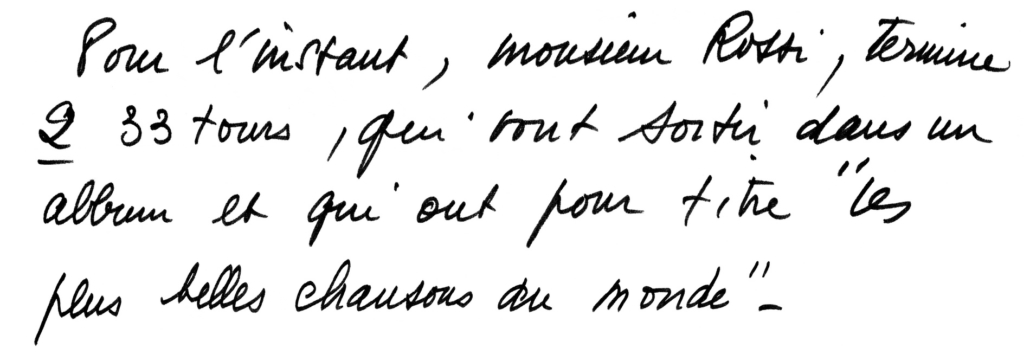 Pour l'instant, monsieur Rossi, termine
2 33 tours, qui vont sortir dans un
album et qui ont pour titre "les
plus belles chansons du monde" -